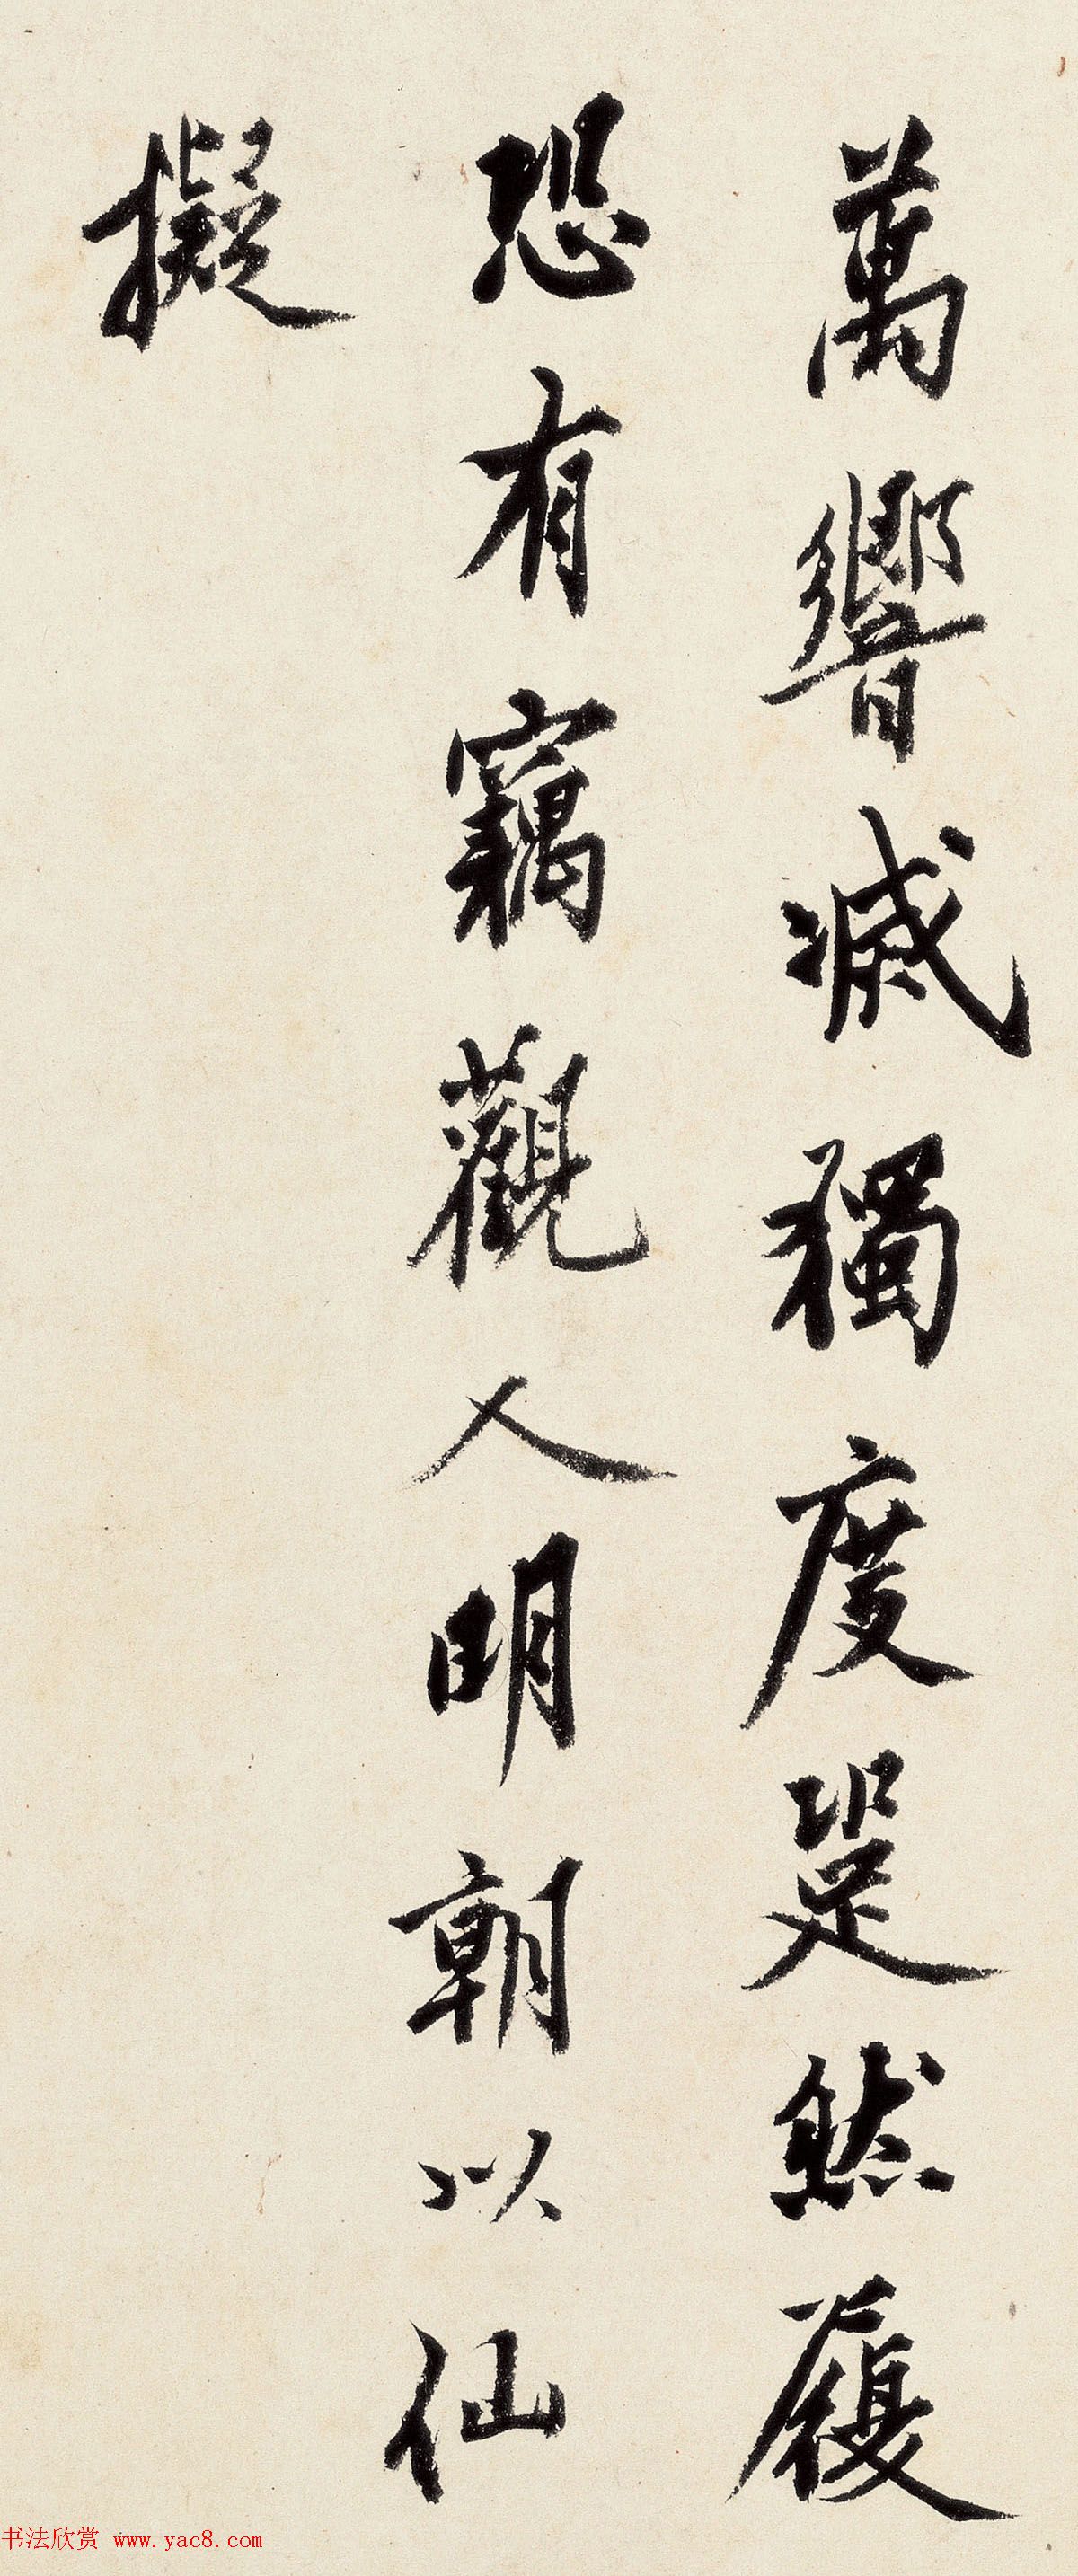 萬響滅獨度跫然履
恐有竊觀人明朝以仙
擬
书法欣赏 www.yac8.com